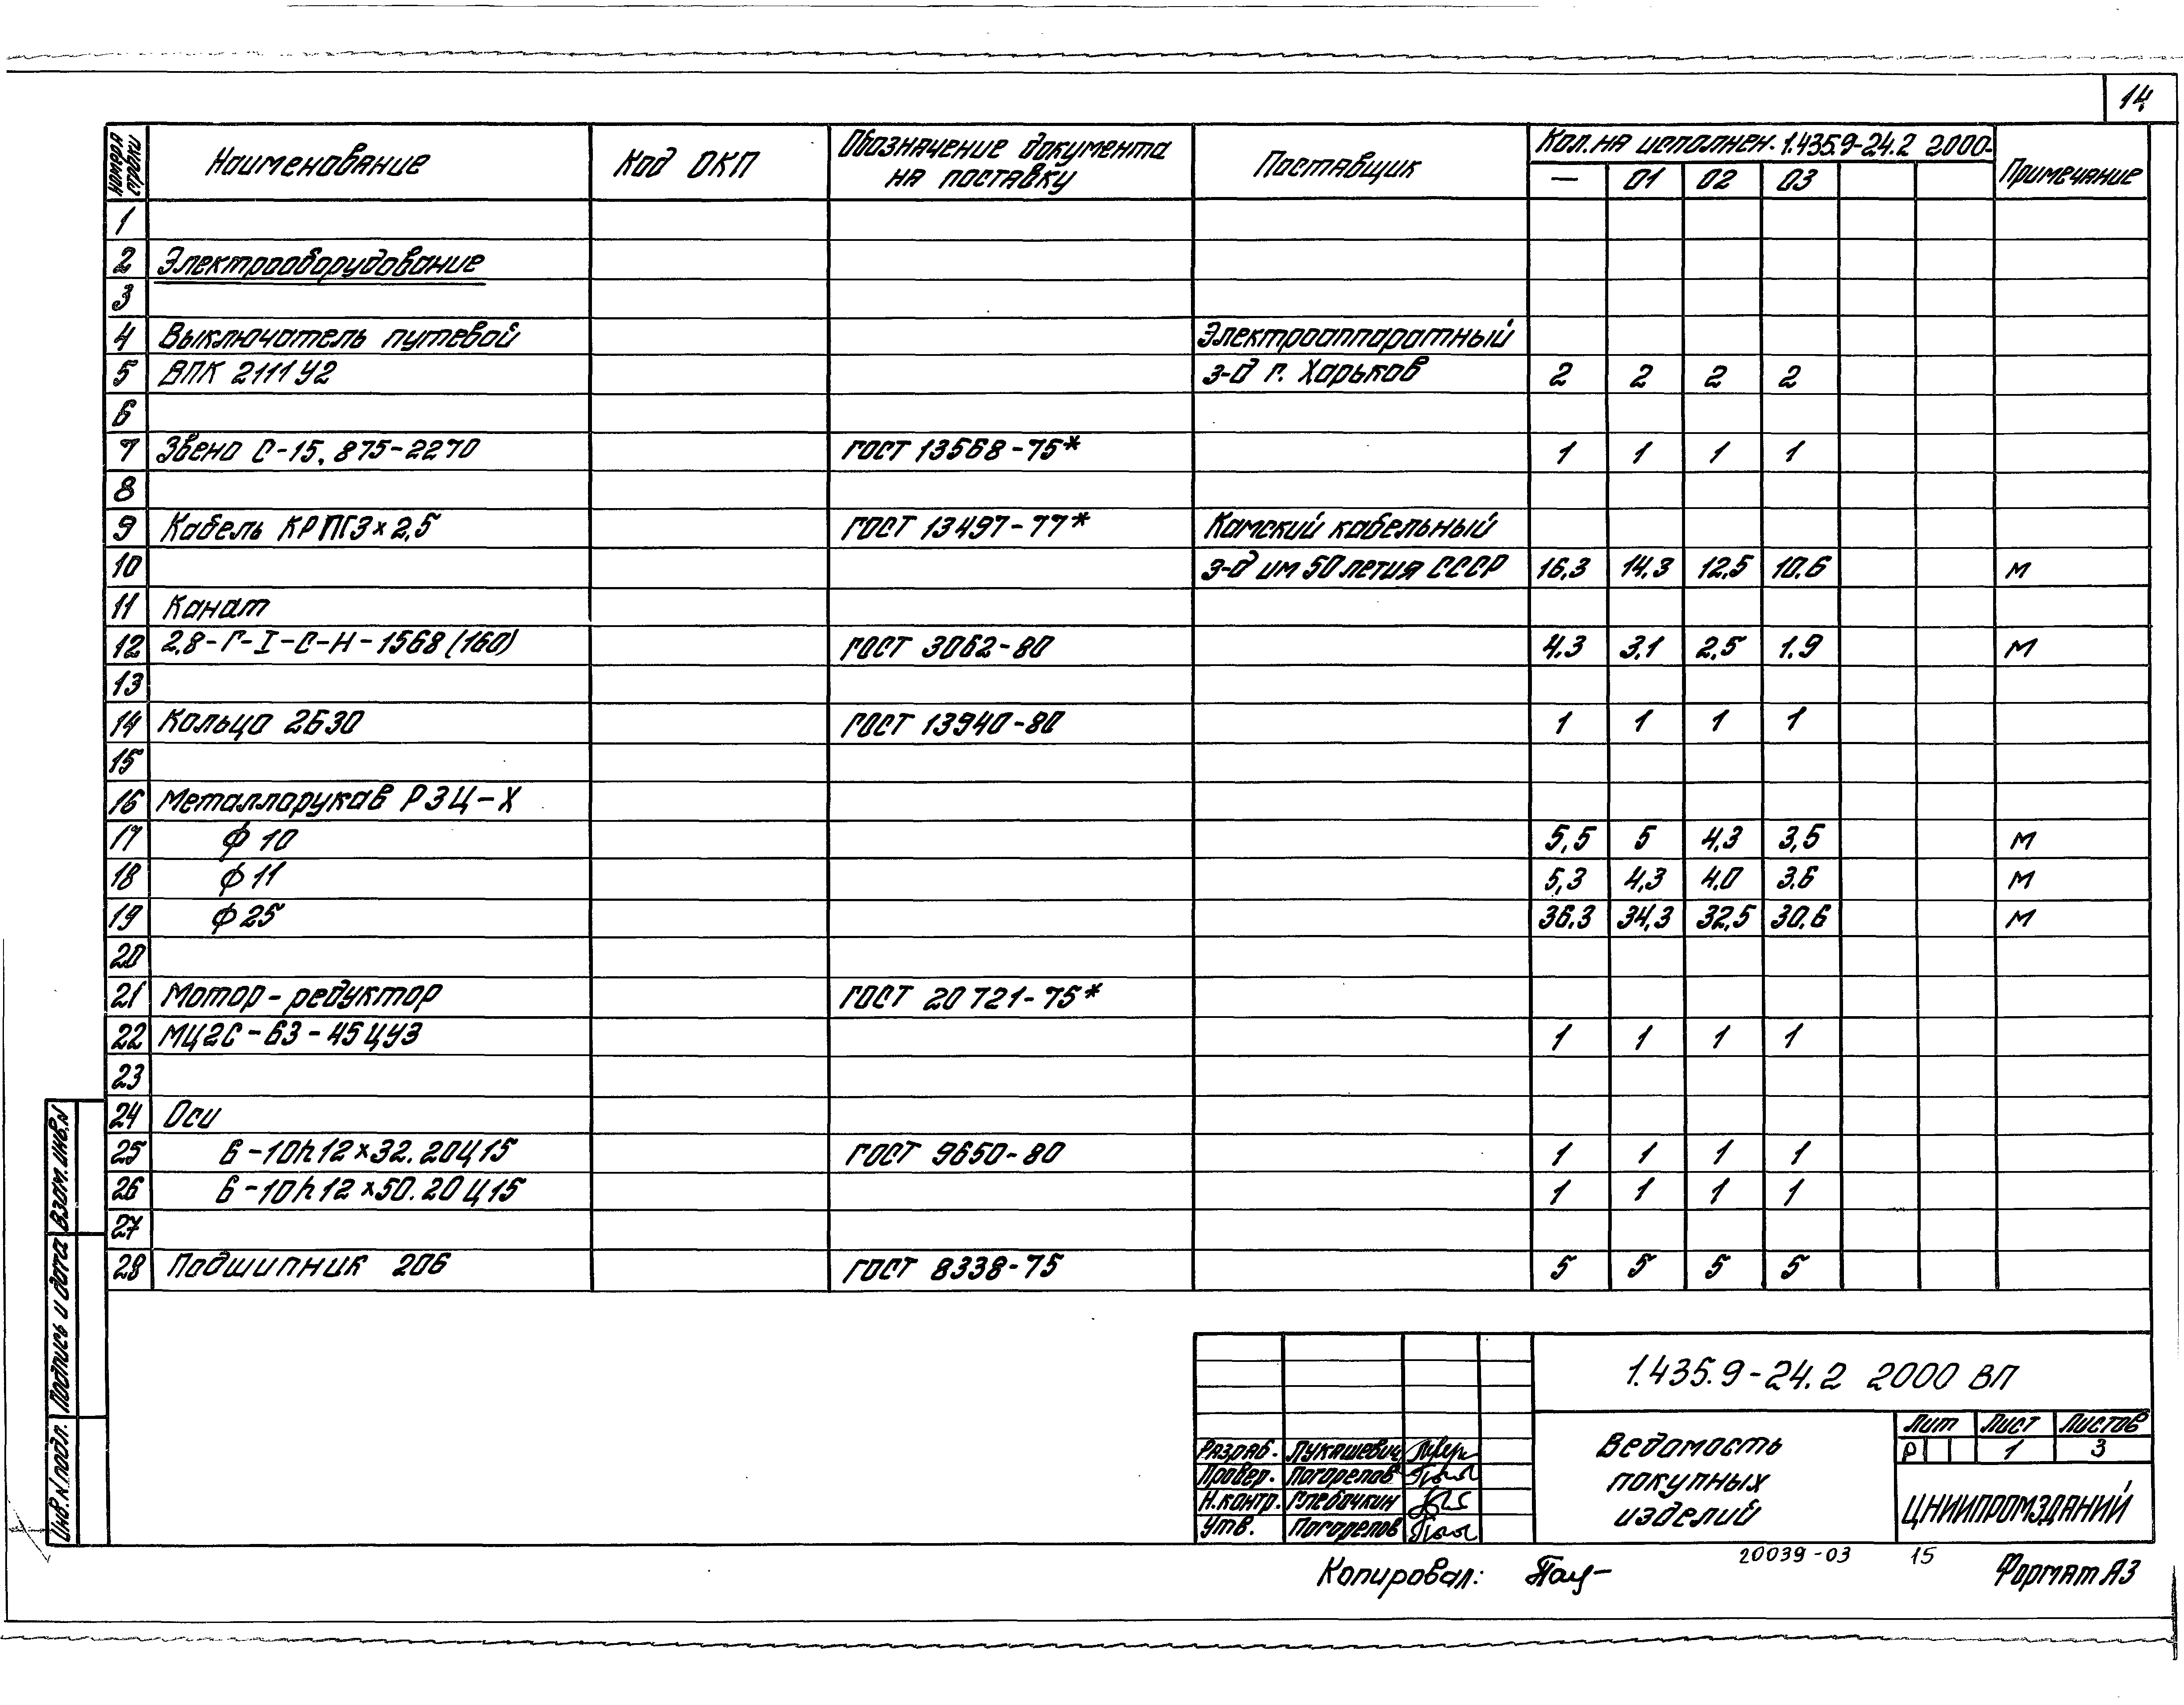 14
номера строки Наименование Код ОКП Обозначение документа на поставку Поставщик Кол. на исполнен. 1.435.9-24.2 2000- Примечание
— 01 02 03
1
2 Электрооборудование
3
4 Выключатель путевой Электроаппаратный
5 ВПК 2111У2 з-д г. Харьков 2 2 2 2
6
7 Звено С-15,875-2270 ГОСТ 13568-75* 1 1 1 1
8
9 Кабель КРПГ3х2,5 ГОСТ 13497-77* Камский кабельный
10 з-д им 50 летия СССР 16,3 14,3 12,5 10,6 м
11 Канат
12 2,8-Г-I-С-Н-1568(160) ГОСТ 3062-80 4,3 3,1 2,5 1,9 м
13
14 Кольцо 2Б30 ГОСТ 13940-80 1 1 1 1
15
16 Металлорукав РЗЦ-Х
17 ф 10 5,5 5 4,3 3,5 м
18 ф 11 5,3 4,3 4,0 3,6 м
19 ф 25 36,3 34,3 32,5 30,6 м
20
21 Мотор-редуктор ГОСТ 20721-75*
22 МЦ2С-63-45ЦУЗ 1 1 1 1
23
24 Оси
25 6-10h12х32.20Ц15 ГОСТ 9650-80 1 1 1 1
26 6-10h12х50.20Ц15 1 1 1 1
27
28 Подшипник 206 ГОСТ 8338-75 5 5 5 5
Взам. инв. N
Подпись и дата
Инв. N подл.
1.435.9-24.2 2000 ВП
Разраб. Лукашевич
Провер. Погорелов
Н.контр. Глебочкин
Утв. Погорелов
Ведомость
покупных
изделий
Лит Лист Листов
Р 1 3
ЦНИИПРОМЗДАНИЙ
20039-03 15
Копировал: Формат А3